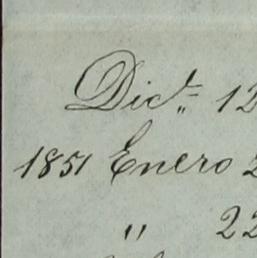 Dic.ᵗ 12
1851 Enero 2
" 22